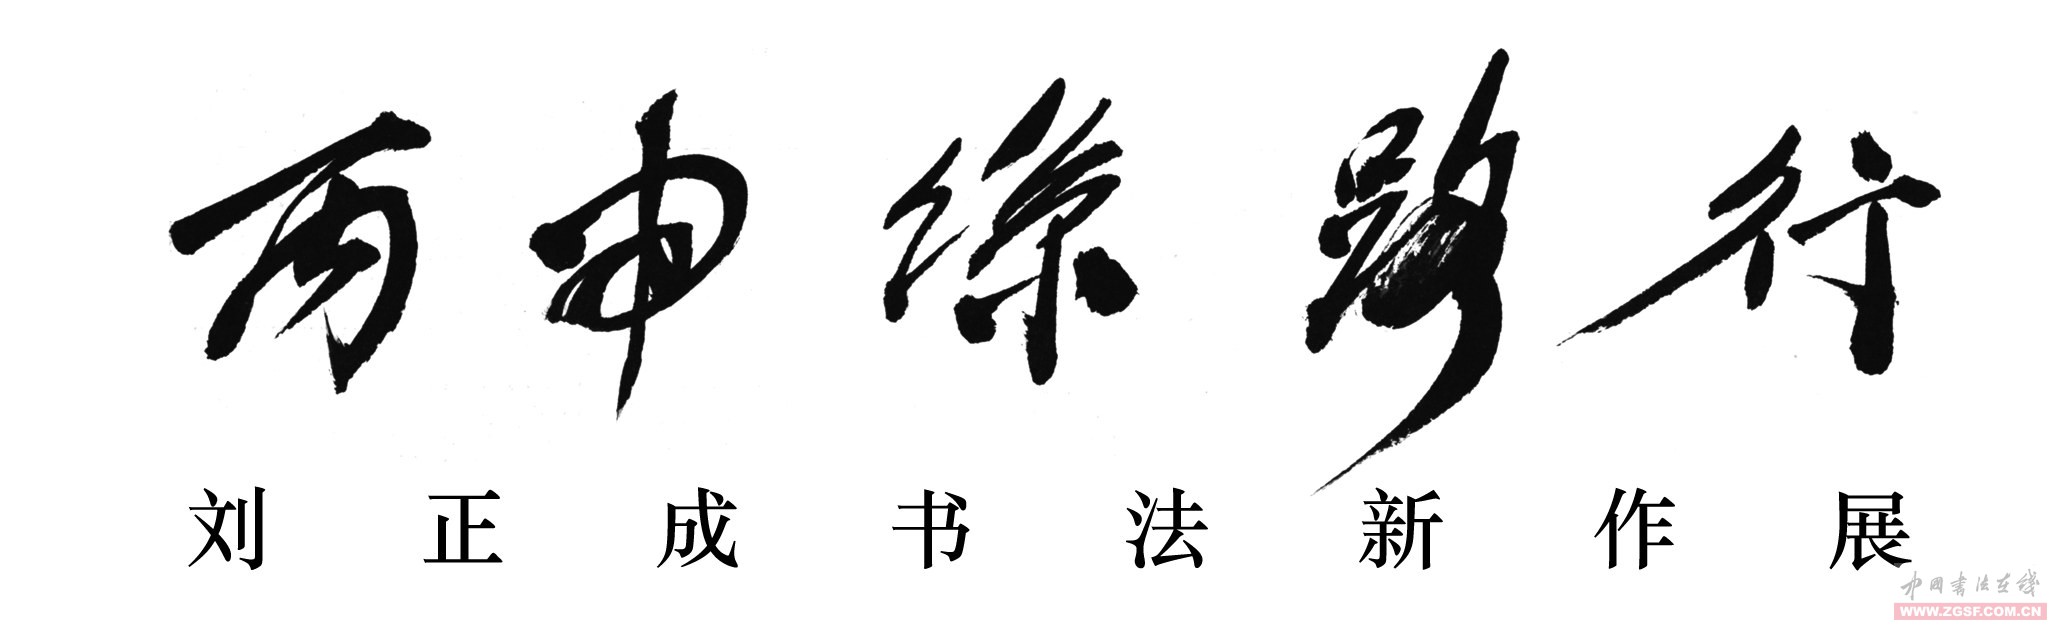 丙申丝路行
刘正成书法新作展
中国书法在线
WWW.ZGSF.COM.CN